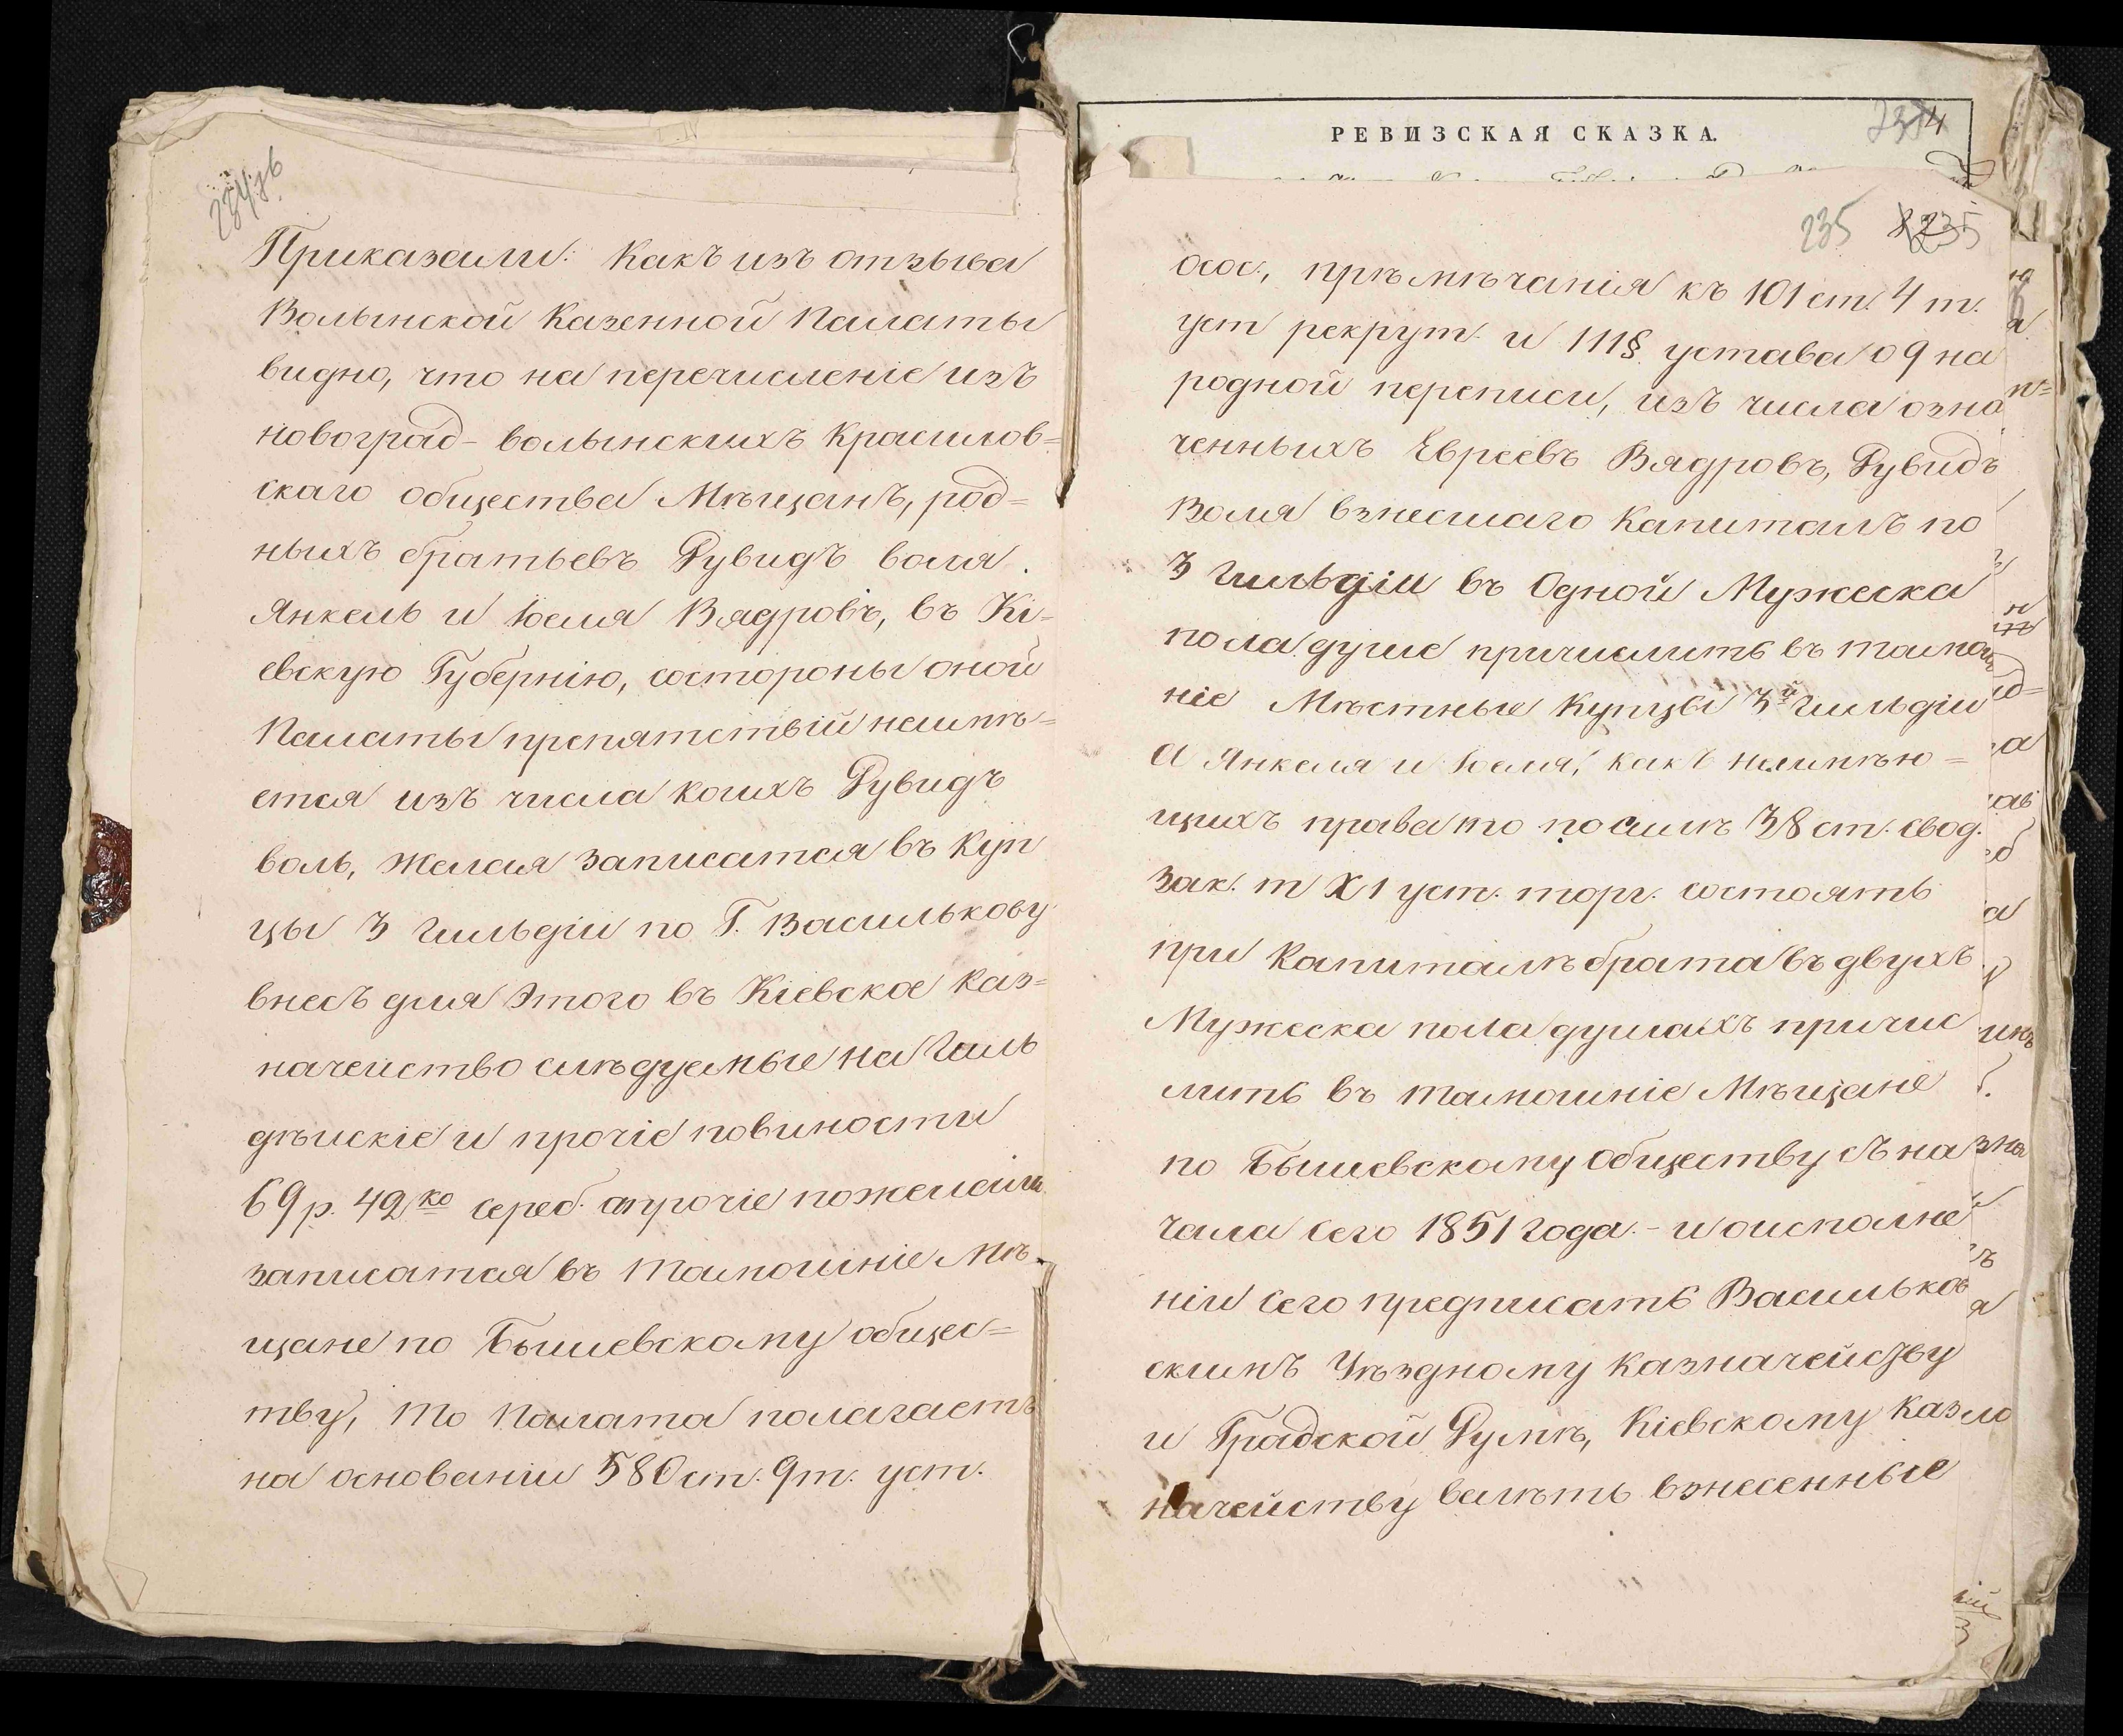 234зв
Приказали: Какъ изъ отзыва
Волынской Казенной Палаты
видно, что на перечисленіе изъ
новоград-волынскихъ Красилов=
скаго общества Мѣщанъ, род=
ныхъ братьевъ Дувидъ воля
Янкель и Іоеля Вядровъ, въ Кі-
евскую Губернію, состороны оной
Палаты препятствій неимѣ=
ется изъ числа коихъ Дувидъ
воль, Желая записатся въ Куп
цы 3 Гильдіи по Г. Василькову
внесъ для Этого въ Кіевское Каз=
начейство слѣдуемые на Гиль
дѣйскіе и прочіе повиности
69 р. 42 ко сереб. апрочіе пожелали
записатся въ тамошніе Мѣ-
щане по Бышевскому общес=
тву, то Палата полагаетъ
на основаніи 580 ст. 9 т. уст.
РЕВИЗСКАЯ СКАЗКА.
234
235 235
осос., прѣмѣчанія къ 101 ст. 4 т.
уст рекрут. и 111§ устава о 9 на
родной переписи, изъ числа озна
ченныхъ Евреевъ Вядровъ, Дувидъ
Воля взнесшаго Капиталъ по
3 Гильдіи въ Одной Мужеска
пола душе причислить въ тамош
ніе Мѣстные Купцы 3й Гильдіи
А Янкеля и Іоеля, какъ неимѣю=
щихъ права то посилѣ 38 ст. свод.
зак. т XI уст. торг. состоять
при Капиталѣ брата въ двухъ
Мужеска пола душахъ причис
лить въ тамошніе Мѣщане
по Бышевскому Обществу съ на
чала сего 1851 года.- и оисполне
ніи сего предписать Васильков
скимъ Уѣздному Казначейству
и Градской Думѣ, Кіевскому Каз
начейству велѣть взнесенные